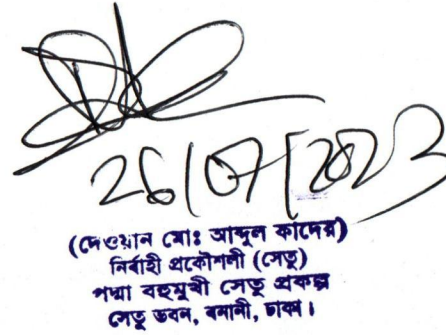 26/07/2023
(দেওয়ান মোঃ আব্দুল কাদের)
নির্বাহী প্রকৌশলী (সেতু)
পদ্মা বহুমুখী সেতু প্রকল্প
সেতু ভবন, বনানী, ঢাকা।